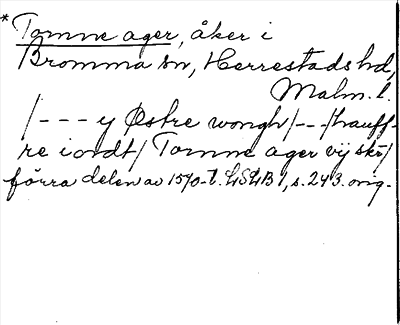 * Tomme ager, åker i
Bromma sn, Herrestads hd,
Malm. l.
/- - - y Østre wongh/- - -/hauff-
re iordt/ Tomme ager vij skr/
förra delen av 1570-t. LSJB 1, s. 243. orig.